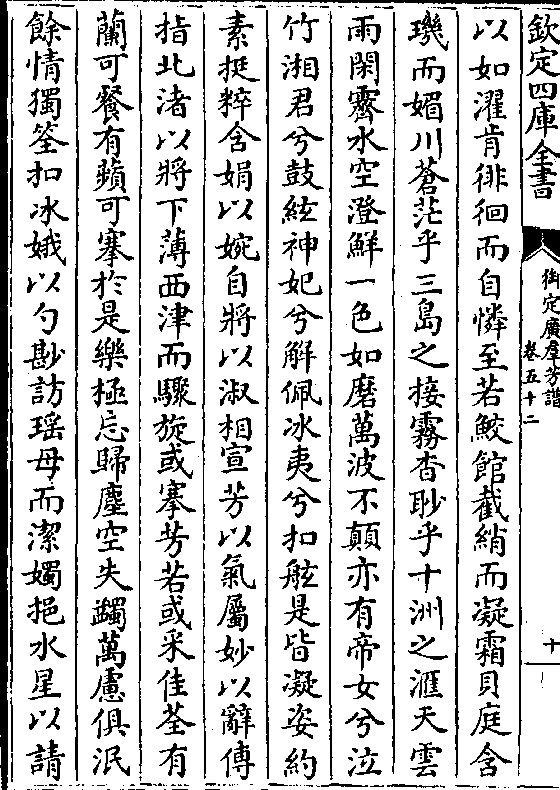 欽定四庫全書
御定廣羣芳譜
卷五十二
十
以如濯肯徘徊而自憐至若鮫館截綃而凝霜貝庭含
璣而媚川蒼茫乎三島之接霧杳眇乎十洲之滙天雲
雨閑霽水空澄鮮一色如磨萬波不顛亦有帝女兮泣
竹湘君兮鼓絃神妃兮解佩冰夷兮扣舷是皆凝姿約
素挺粹含娟以婉自將以淑相宣芳以氣屬妙以辭傳
指北渚以將下薄西津而驟旋或搴芳若或采佳荃有
蘭可餐有蘋可搴於是樂極忘歸塵空失蠲萬慮俱泯
餘情獨筌扣冰娥以勺斟訪瑶母而潔蠲挹水星以請